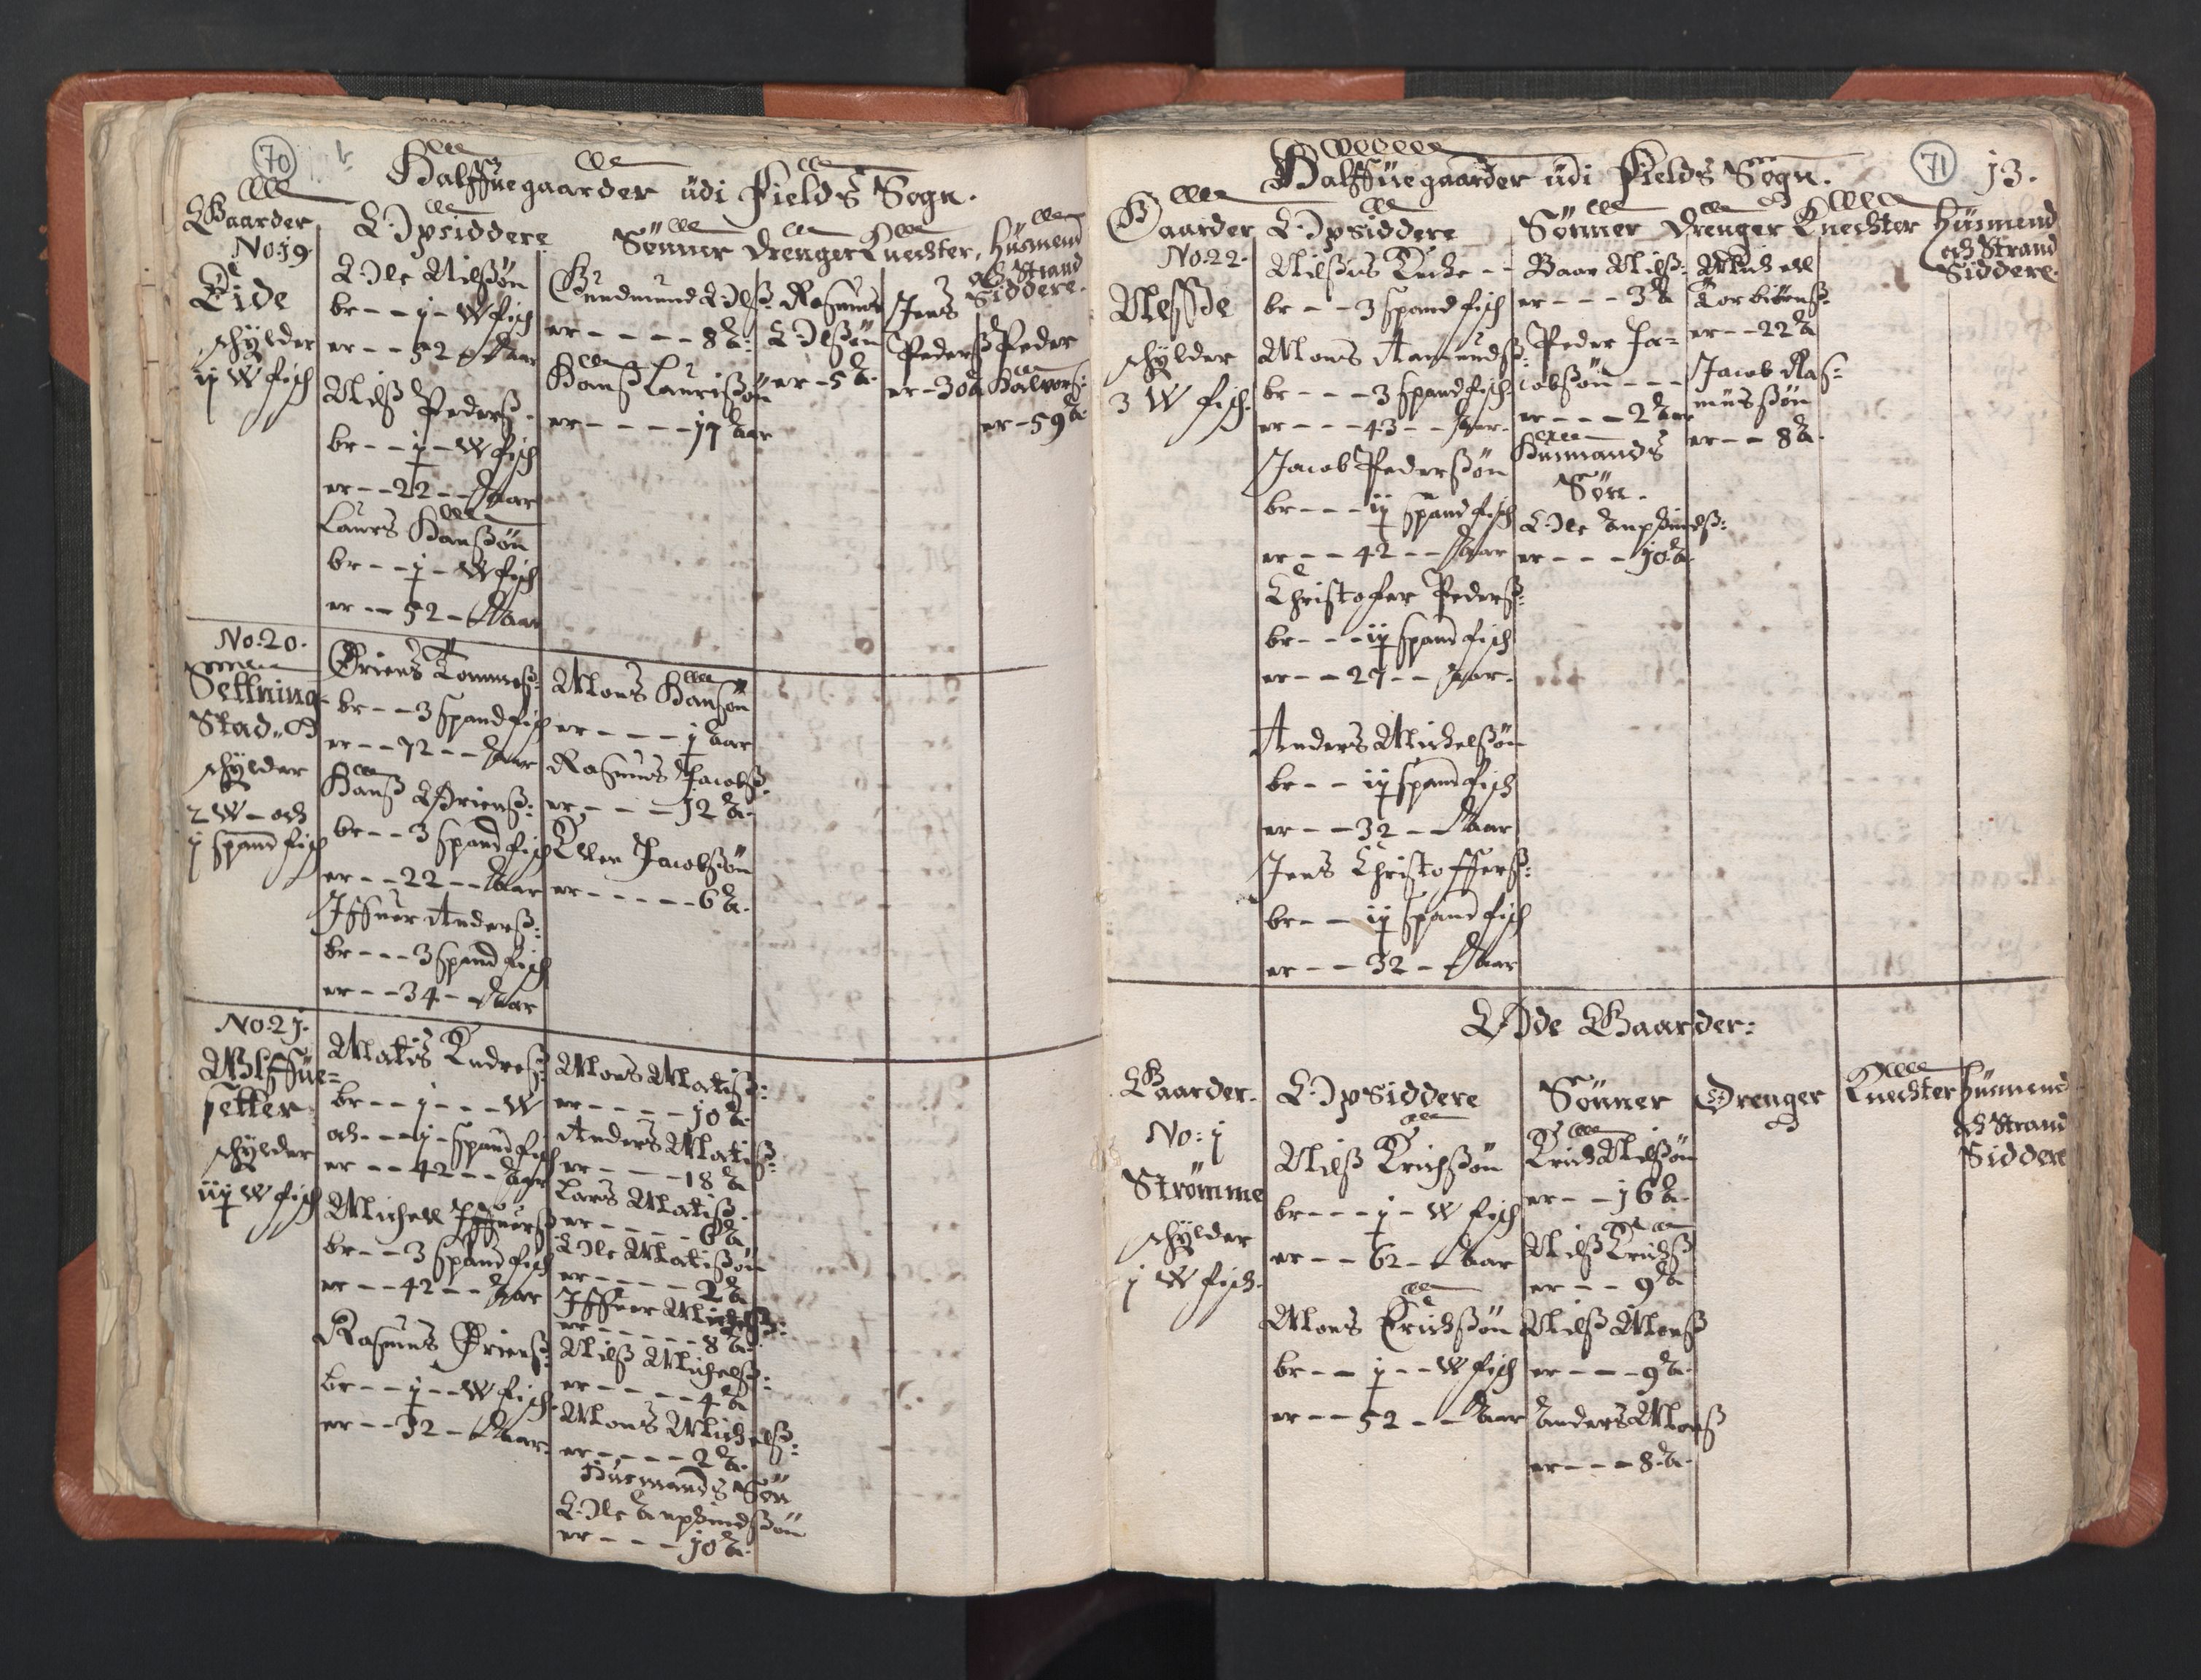 70
Halffuegaarder üdi Fields Sogn.
Gaarder
Opsiddere
Sønner Drenger Knechter, Hüsmend
och Strand
Siddere.
No: 19
Eide
schylder
ij W fisch
Ole Nilsøn
br - - j - W fisch
er - - 52 Aar
Nilß Pederß:
br - - j - W fisch
er - - 22 - - Aar
Laurs Hanßøn
br - - j - W fisch
er - - 52 - Aar
Gundmund Olß:
er - - - - 8 A:
Hanß Laurisøn
er - - - - 17 Aar
Rasmus
Olßøn
er - 5 A.
Jens
Pederß
er - 30 A
Peder
Halvorß:
er - 59 A
No: 20.
Sellning
Stad
schylder
2 W - och
j spand fisch
Briens Tommeß:
br - - 3 spand fisch
er - - 72 - - Aar
Hanß Brienß:
br - - 3 spand fisch
er - - 22 - - Aar
Iffuer Anderß:
br - - - 3 spand fisch
er - - 34 - Aar
Mons Hansøn
er - - - - j Aar
Rasmus Jacobß.
er - - - - 12 A.
Ellen Jacobsøn
er - - - - - 6 A.
No: 21.
Ølffue=
setter.
schylder
iij W fisch
Matis Endreß:
br - - j - - - W
och - - - j - spand fisch
er - - - 42 - - - Aar
Michell Iffuerß
br - - 3 spand fisch
er - - 42 - - Aar
Rasmus Brienß:
br - - j - - W fisch.
er - - 32 - Aar.
Mons Matiß:
er - - - - 10 A.
Anders Matiß:
er - - - - 18 A
Lars Matiß.
er - - - - - 6 A
Ole Matisøn
er - - - - - 2 A
Iffuer Michelß:
er - - - - - - 8 A.
Nilß Michelß:
er - - - - - 4 A
Mons Michelß:
er - - - - - 2 A.
Husmands Søn
Ole Anphindßøn
er - - - - 10 A.
71
13.
Halffuegaarder üdi Fields Sogn.
Gaarder Opsiddere Sønner Drenger Knechter Hüsmend
och Strand
Siddere.
No: 22.
Nesse
schylder
3 W fisch.
br - - - 3 spand fisch
Mons Aamundß:
br - - - 3 spand fisch.
er - - - 43 - - Aar.
Jacob Pedersøn
br - - - ij spand fisch
er - - 42 - - Aar
Christofer Pederß:
br - - - ij spand fisch
er - - 27 - - Aar.
Anders Michelsøn
br - - ij spand fisch
er - - 32 - Aar
Jens Christofferß:
br - - ij spand fisch
er - - - 32 - Aar
Baar Nilß:
er - - - - 3 A
Peder Ja=
cobsøn - - -
er - - - - 2 Aar
Husmands
Søn.
Ole Anphindß:
er - - - - 10 A.
Michell
Torbiørnß.
er - - 22 A
Jacob Ras=
musßøn
er - - 8 A.
Øde Gaarder:
Gaarder. Opsiddere Sønner Drenger Knechter Hüsmend
och Strand
Siddere
No: j
Strømme
schylder
j W fisch.
Nilß Erichßøn
br - - - j - W fisch
er - - 62 - Aar
Mons Erichßøn
br - - - j - - W fisch
er - - - 52 - - Aar
Erich Nilsøn
er - - - 16 A.
Nilß Erichß
er - - - 9 A
Nilß Monß
er - - - - 9 A.
Anders Monß
er - - - - 8 A.